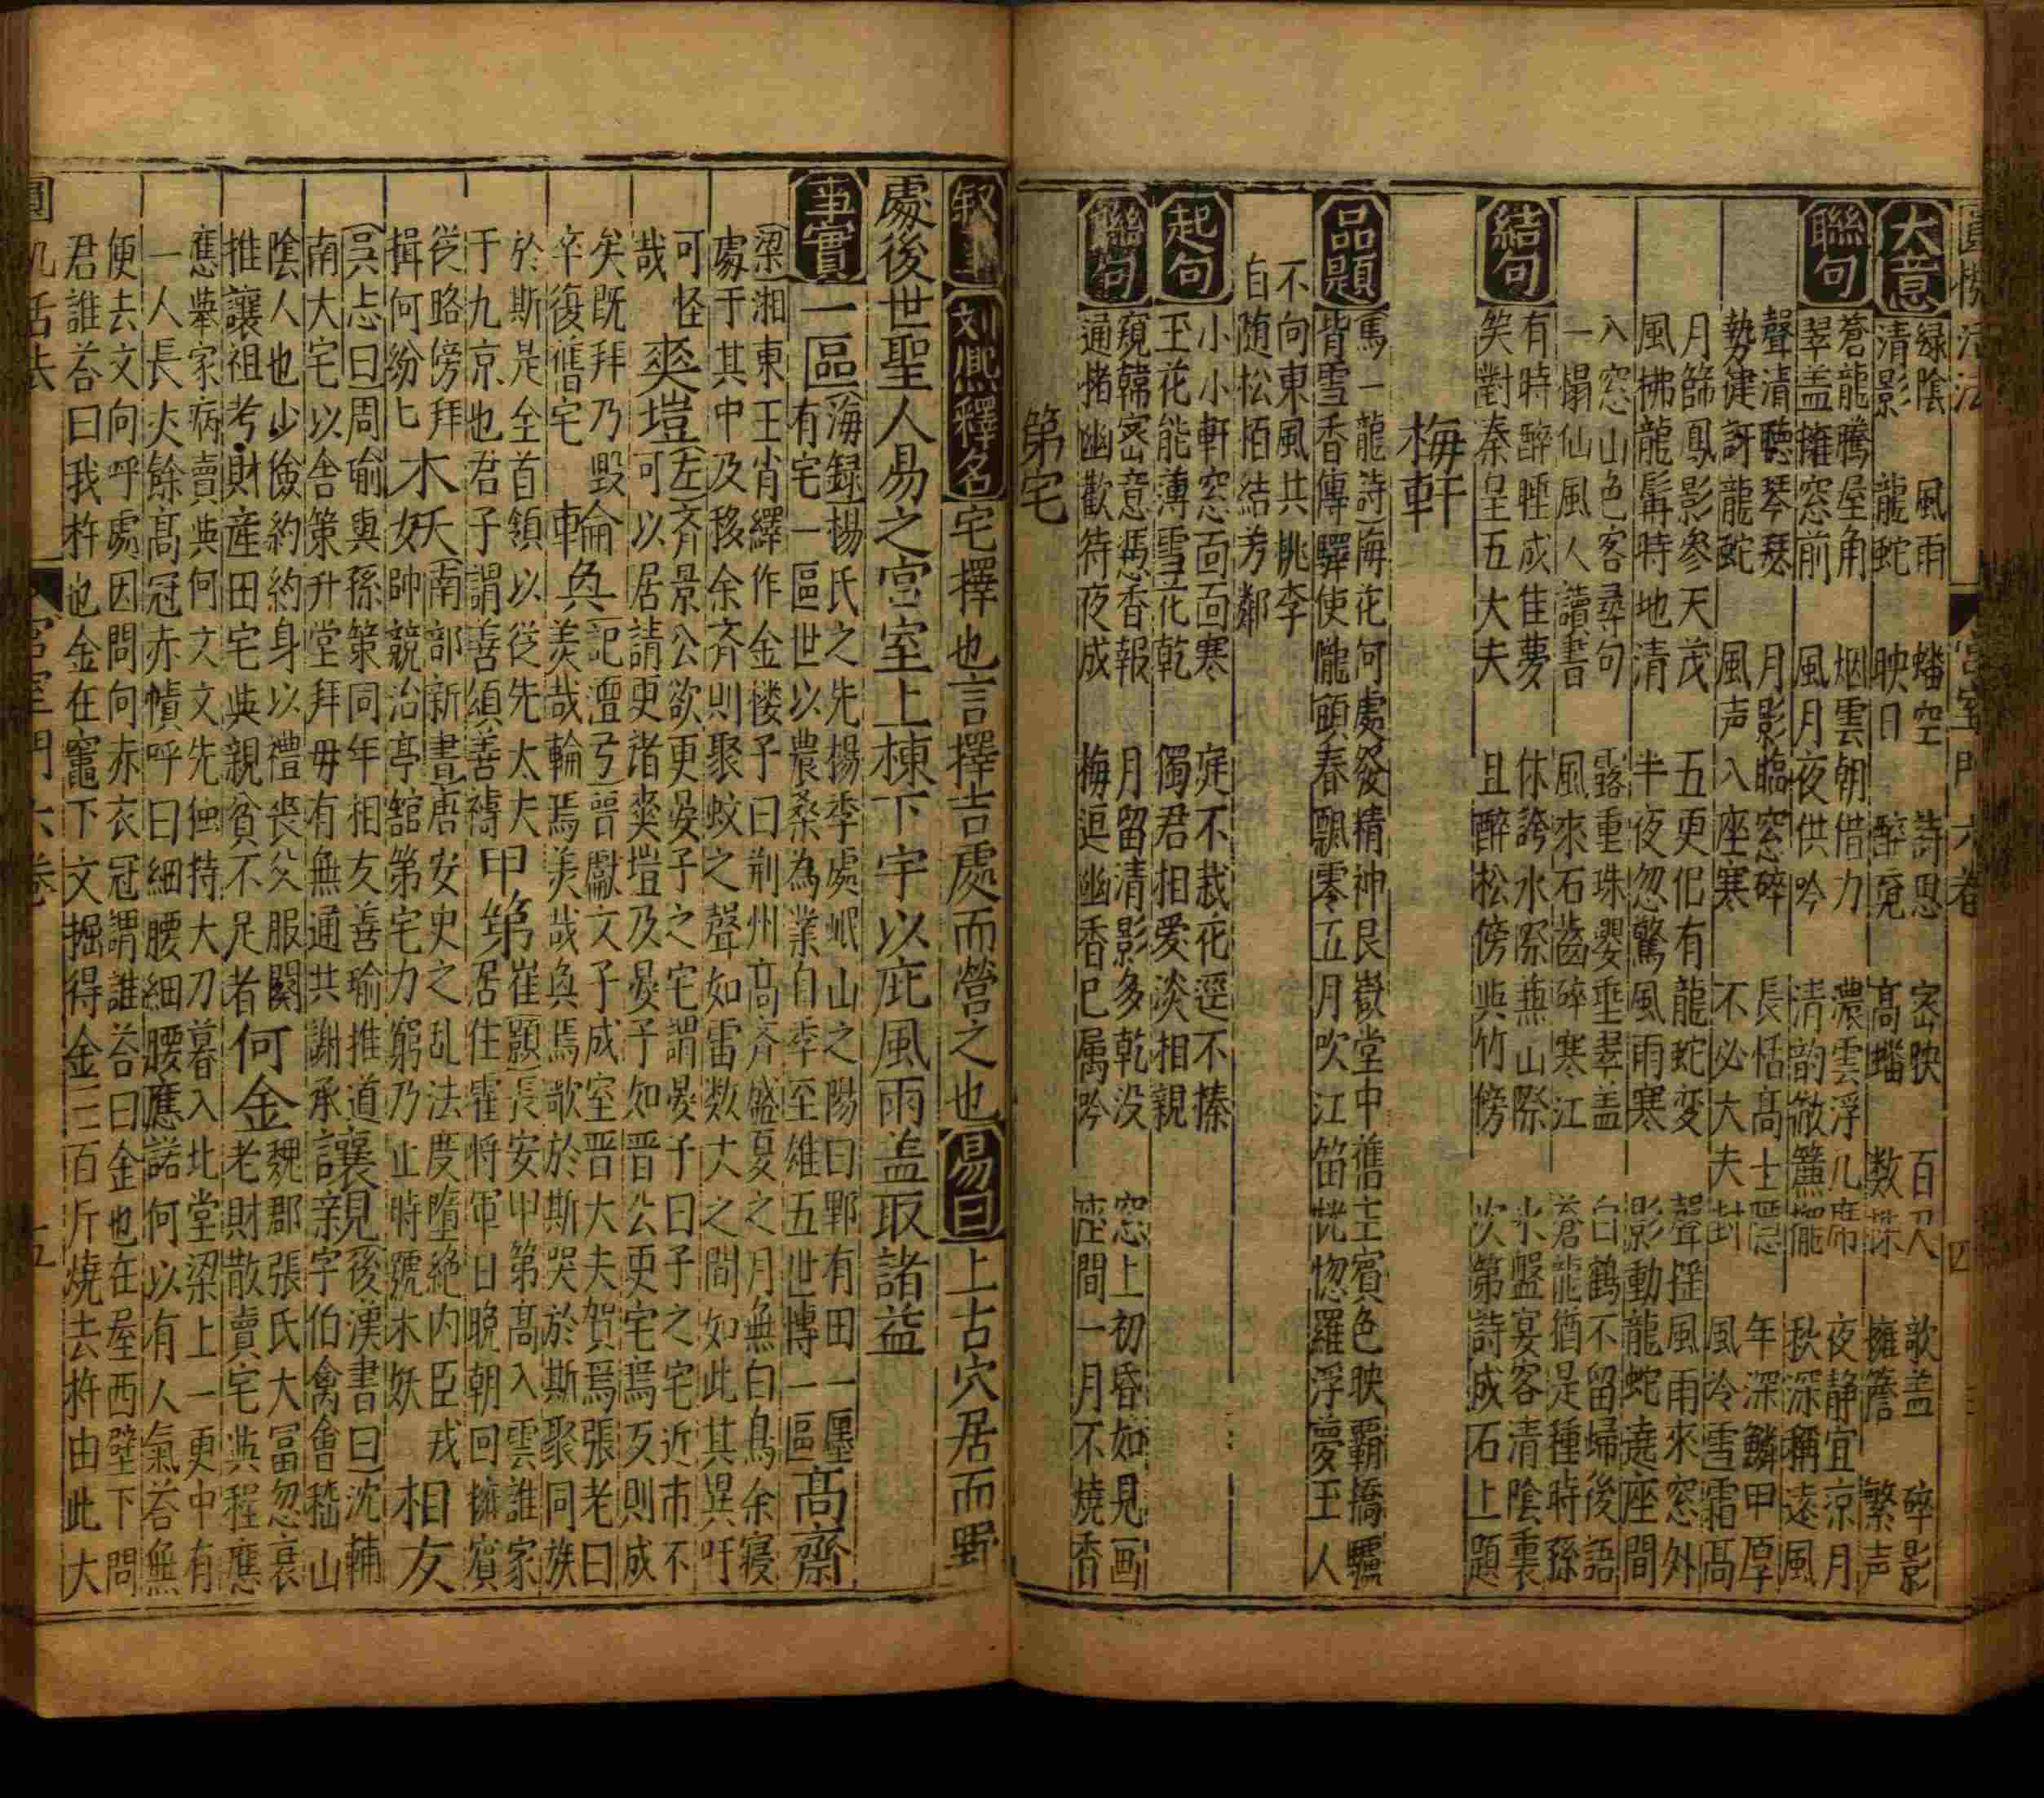 大意
綠陰　風雨　蟠空　詩思　密映　百尺　歌盖　碎影
清影　龍蛇　映日　醉魂　高蟠　数株　擁簷　繁声
聯句
蒼龍騰屋角　烟雲朝借力　濃雲浮几席　夜静宜凉月
翠盖擁窓前　風月夜供吟　清韵敞簾櫳　秋深稱遠風
聲清聽琴瑟　月影臨窓碎　長恬高士隱　年深鱗甲厚
勢健訝龍蛇　風声入座寒　不必大夫封　風冷雪霜高
月篩鳳影參天茂　五更但有龍蛇変　聲揺風雨來窓外
風拂龍髯時地清　半夜忽驚風雨寒　影動龍蛇遶座間
入窓山色客尋句　露重珠嬰垂翠盖　白鶴不留㷌後語
一榻仙風人讀書　風來石齒碎寒江　蒼龍猶是種時孫
結句
有時醉睡成佳夢　休誇水際兼山際　氷盤宴客清陰裏
笑對秦呈五大夫　且醉松傍與竹傍　次第詩成石上題
梅軒
品題
馬一龍詩海花何處發精神艮嶽堂中舊主賔色映覇橋驢
背雪香傳驛使隴頭春飄零五月吹江笛恍惚羅浮夢王人
不向東風共桃李
自随松栢結芳鄰
起句
小小軒窓面面寒　庭不栽花逕不榛
玉花能薄雪花乾　獨君相愛淡相親
聯句
窺韓密意慿香報　月留清影多乾没　窓上初昏如見画
通楮幽歡待夜成　梅逗幽香已属吟　座間一月不燒香
第宅
叙事　刘熈釋名　宅擇也言擇吉處而營之也　易曰　上古穴居而野
處後世聖人易之宫室上棟下宇以庇風雨盖取諸益
事實
一區海録楊氏之先楊季處岷山之陽曰郫有田一廛
有宅一區世以農桑為業自季至雄五世傳一區高齋
梁湘東王肖繹作金楼予曰荆州高斉盛夏之月無白鳥余寝
處于其中及移余斉則聚蚊之聲如雷数大之間如此其異吁
可怪
哉
爽塏左齐景公欲更晏子之宅謂晏子曰子之宅近市不
可以居請更诸爽塏及晏子如晋公更宅焉反則成
矣既拜乃毁
卒復舊宅
輪奐記澶弓晉獻文子成室晋大夫賀焉張老曰
羙哉輪焉羙哉奐焉歌於斯哭於斯聚同族
於斯是全首領以從先太夫
于九京也君子謂善頌善禱
甲第崔顥長安甲第高入雲誰家
居住霍將軍日晩朝回擁賓
從路傍拜
揖何紛匕
木妖南部新書唐安史之乱法度墮絶内臣戎
帥競治亭舘第宅力窮乃止時號木妖
相友
吳志曰周瑜與孫策同年相友善瑜推道
南大宅以舎策升堂拜毋有無通共謝承
讓親後漢書曰沈輔
字伯禽會稽山
陰人也少儉約約身以禮喪父服闋
推讓祖考財産田宅與親貧不足者
何金魏郡張氏大冨忽衰
老財散賣宅與程應
應舉家病賣與何文文先独持大刀暮入北堂梁上一更中有
一人長大餘髙冠赤幘呼曰細腰細腰應諾何以有人氣荅無
便去文向呼處因問向赤衣冠謂誰荅曰金也在屋西壁下問
君誰荅曰我杵也金在竈下文掘得金三百斤燒去杵由此大
宫室門六卷　五